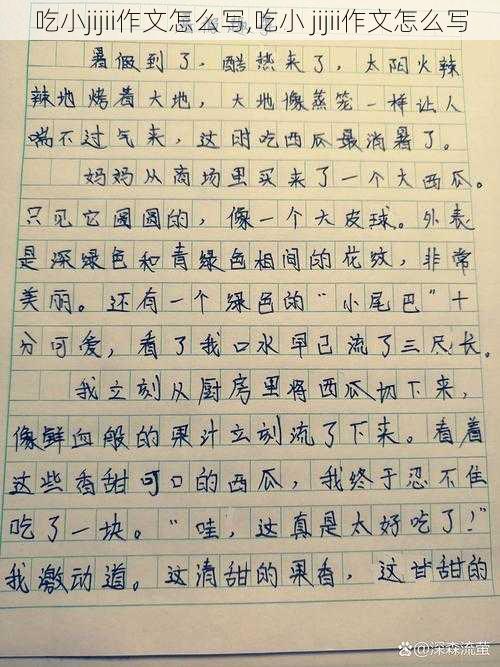 吃小jijii作文怎么写,吃小 jijii作文怎么写
暑假到了，酷热来了，太阳火辣
辣地烤着大地，大地像蒸笼一样让人
喘不过气来，这时吃西瓜最消暑了。
妈妈从商场里买来了一个大西瓜。
只见它圆圆的，像一个大皮球。外表
是深绿色和青绿色相间的花纹，非常
美丽。还有一个绿色的“小尾巴”十
分可爱，看了我口水早已流了三尺长。
我立刻从厨房里将西瓜切下来，
像鲜血般的果汁立刻流了下来。看着
这些香甜可口的西瓜，我终于忍不住
吃了一块。“哇，这真是太好吃了！”
我激动道。这清甜的果香，这甘甜的
百家号/深森流萤